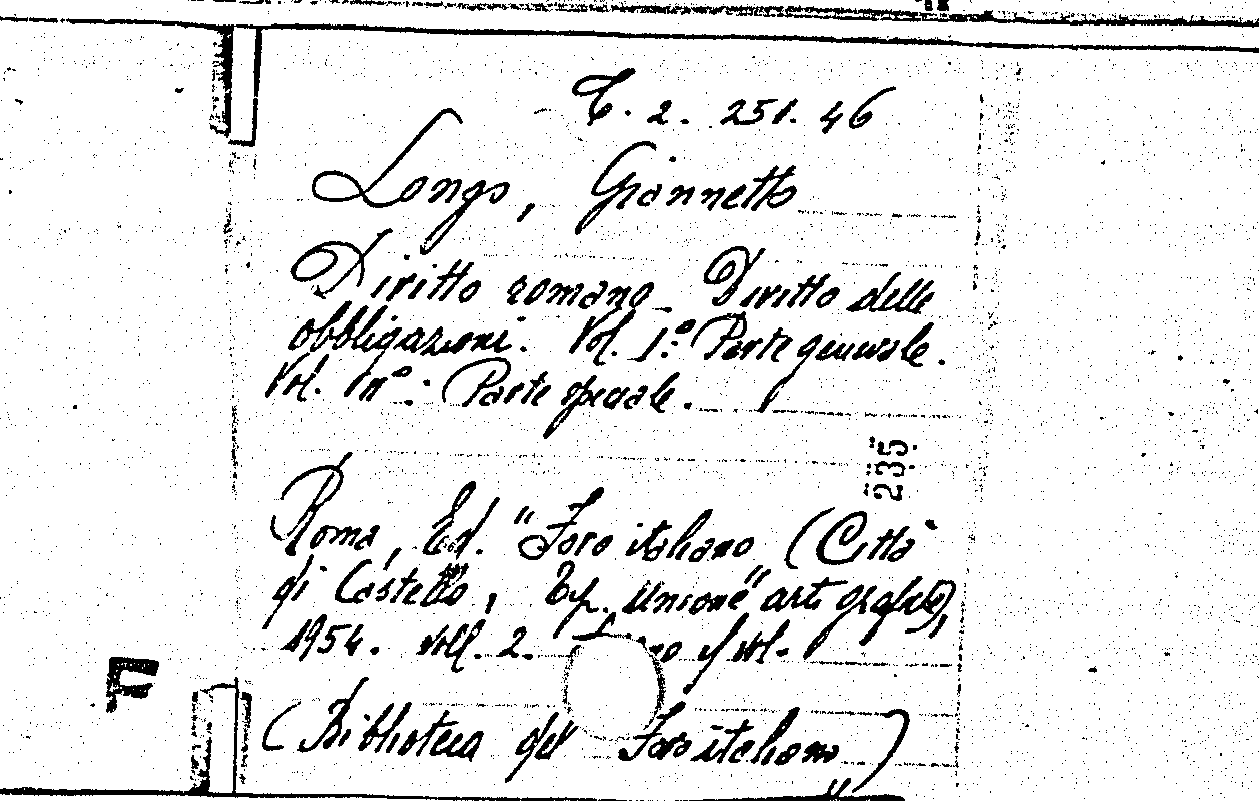 C. 2. 251. 46
Longo, Giannetto
Diritto romano _ Diritto delle
obbligazioni. Vol. 1.° Parte generale.
Vol. : Parte speciale.
235
Roma, Ed. "Foro italiano (Città
di Castello, Tip. Unione" arti grafiche),
1954. voll. 2. vol.
F
(Biblioteca del Foro italiano")